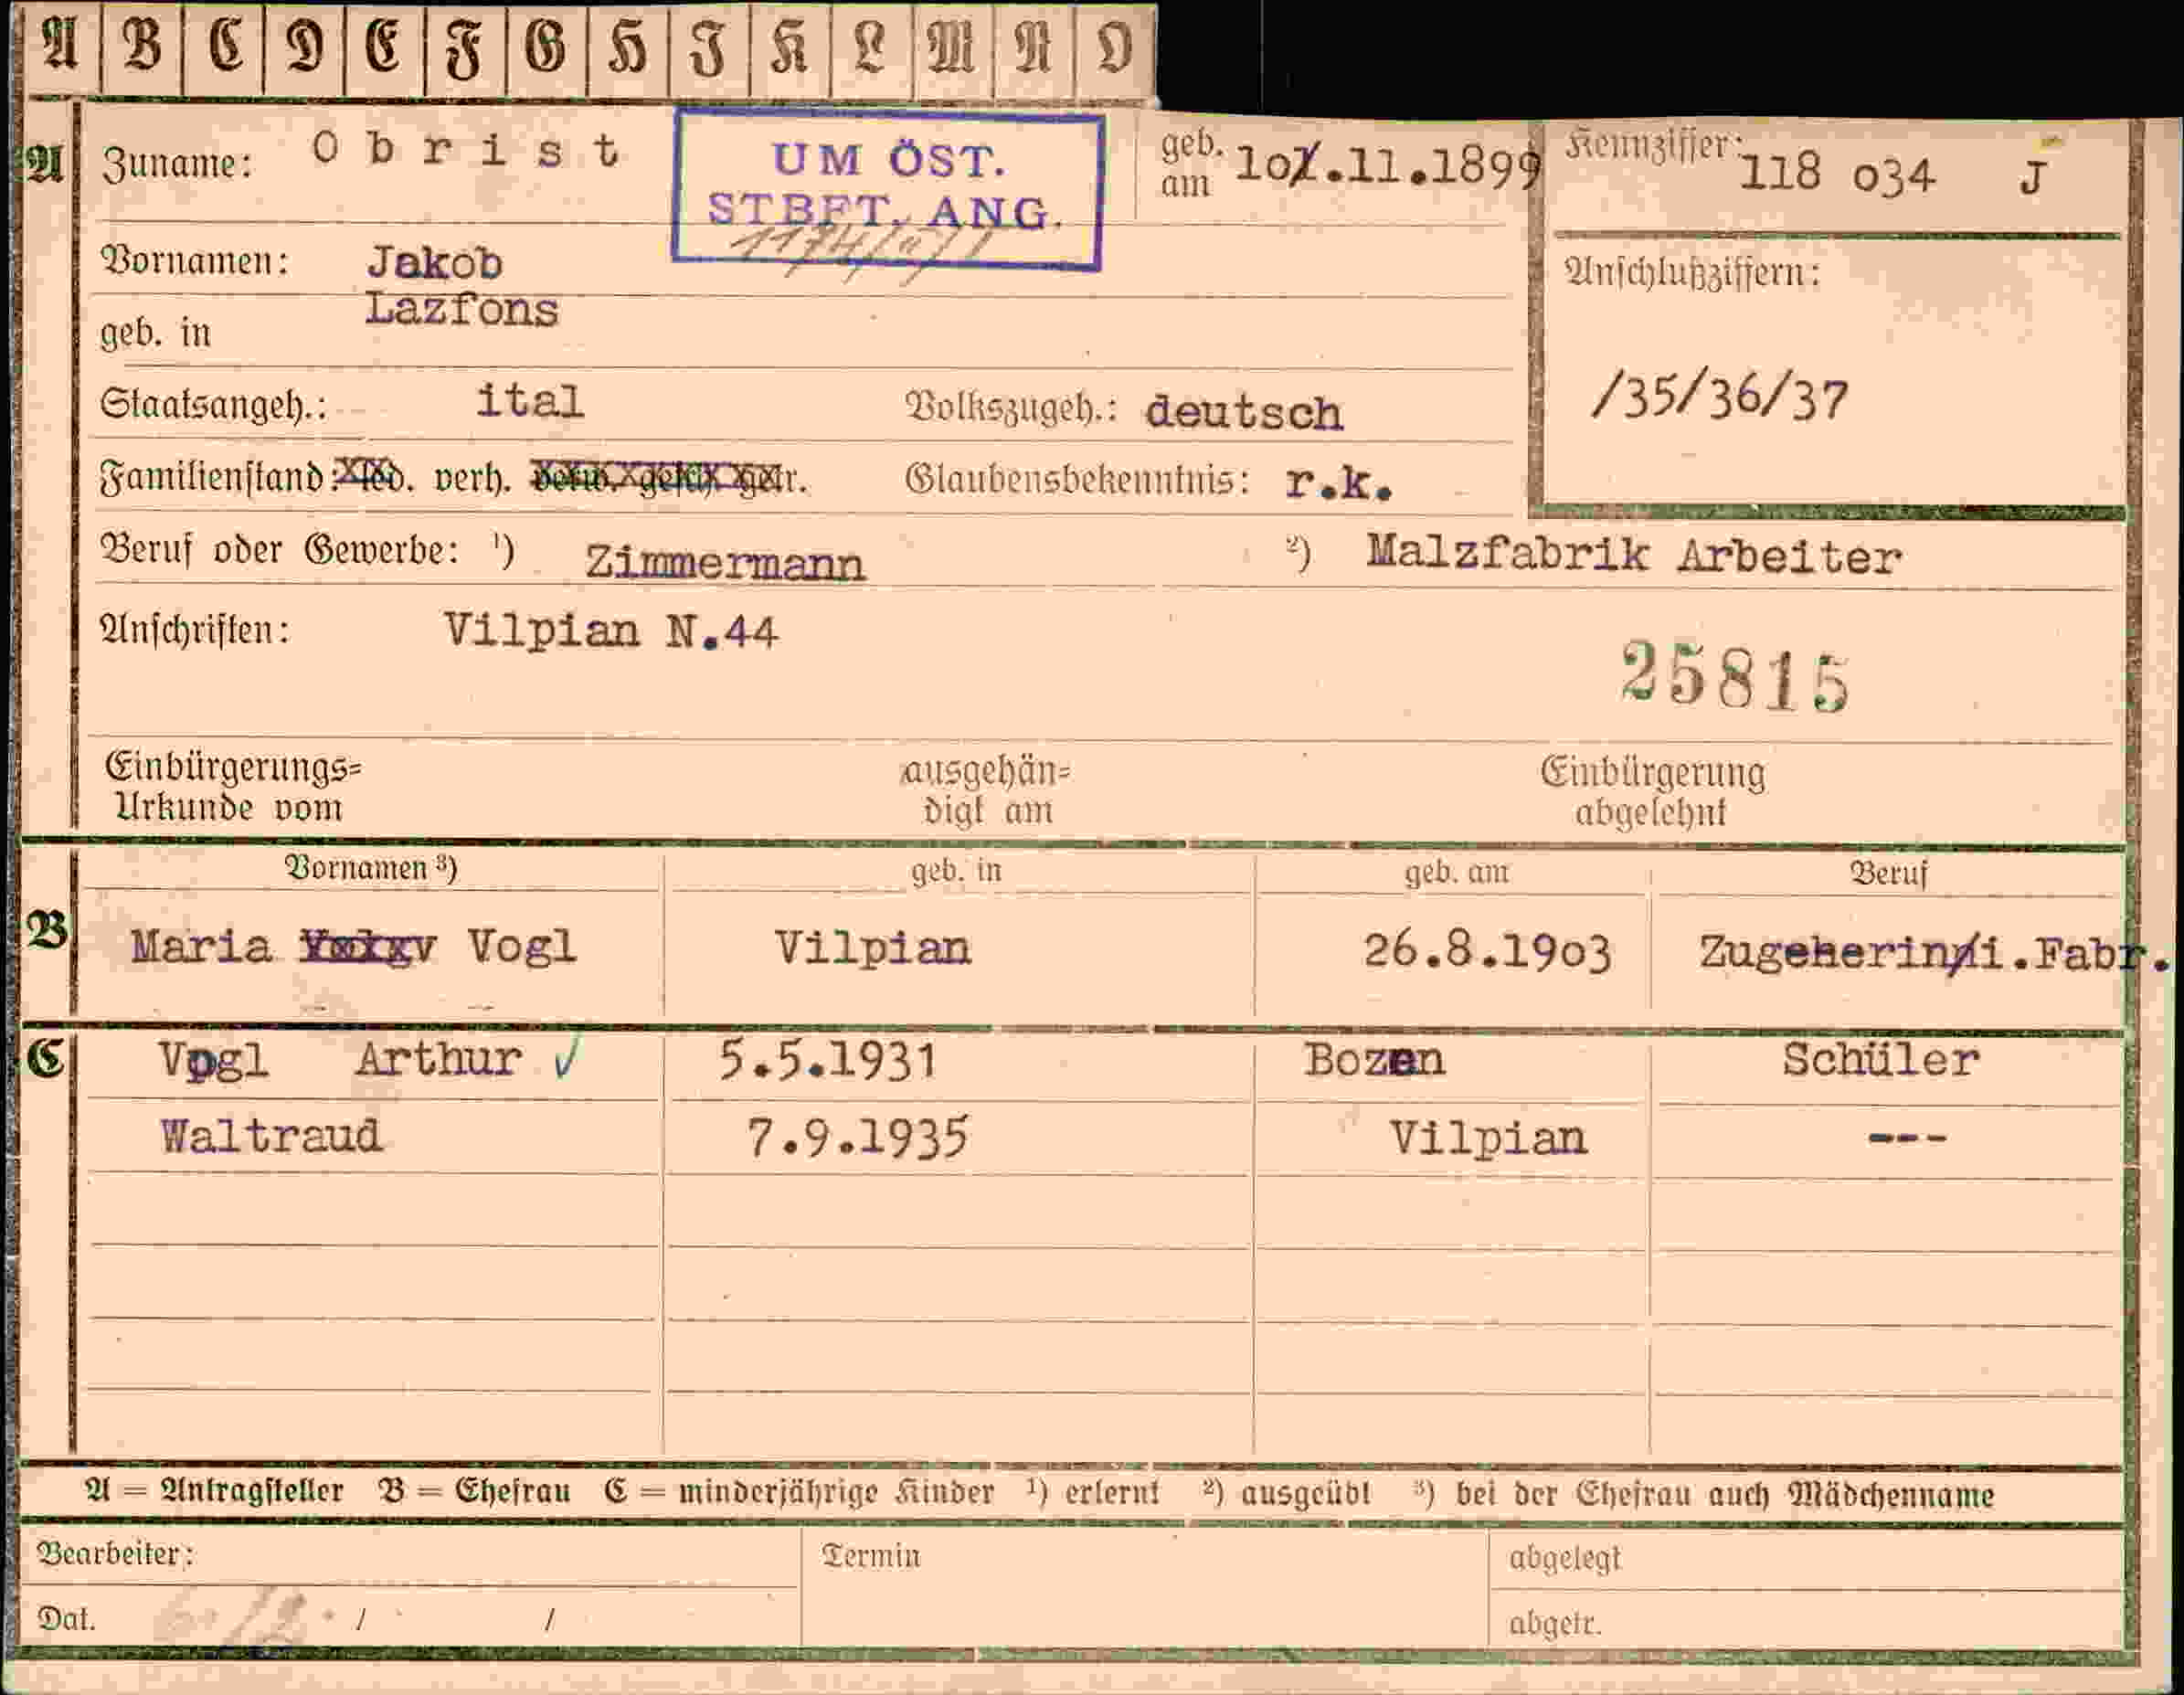 A B C D E F G H J K L M N O
A Zuname: Obrist UM ÖST. STBFT. ANG. geb. am 10.11.1899 Kennziffer: 118 034 J
Vornamen: Jakob Anschlußziffern:
geb. in Lazfons
/35/36/37
Staatsangeh.: ital Volkszugeh.: deutsch
Familienstand: led. verh. verw. gesch. getr. Glaubensbekenntnis: r.k.
Beruf oder Gewerbe: ¹) Zimmermann ²) Malzfabrik Arbeiter
Anschriften: Vilpian N.44
25815
Einbürgerungs= Urkunde vom ausgehän= digt am Einbürgerung abgelehnt
Vornamen ³) geb. in geb. am Beruf
B Maria Vogl Vilpian 26.8.1903 Zugeherin i.Fabr.
C Vogl Arthur √ 5.5.1931 Bozen Schüler
Waltraud 7.9.1935 Vilpian ---
A = Antragsteller B = Ehefrau C = minderjährige Kinder ¹) erlernt ²) ausgeübt ³) bei der Ehefrau auch Mädchenname
Bearbeiter: Termin abgelegt
Dat. / / abgetr.